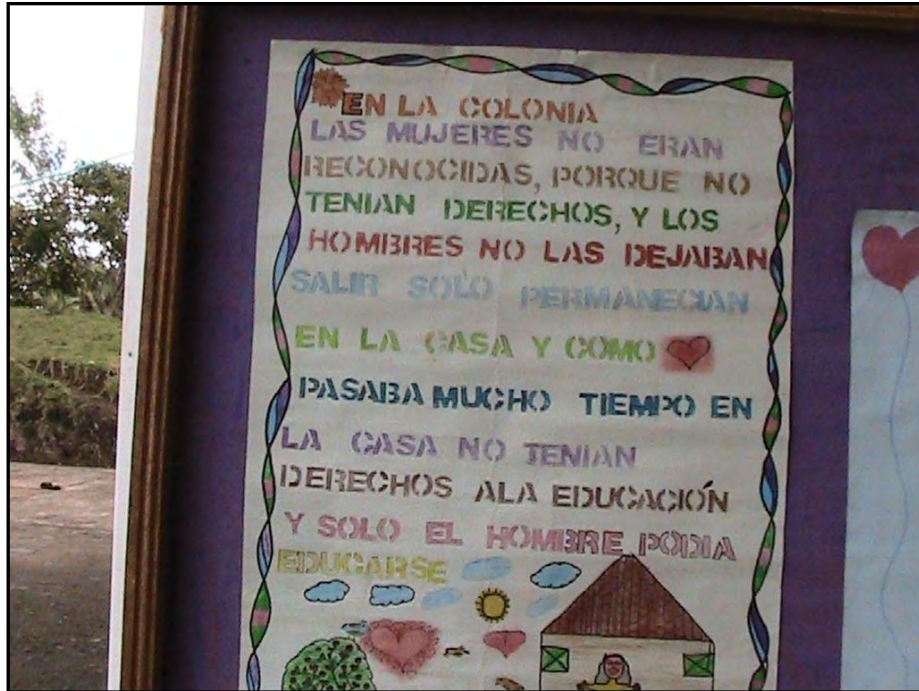 EN LA COLONIA
LAS MUJERES NO ERAN
RECONOCIDAS, PORQUE NO
TENIAN DERECHOS, Y LOS
HOMBRES NO LAS DEJABAN
SALIR SOLO PERMANECIAN
EN LA CASA Y COMO
PASABA MUCHO TIEMPO EN
LA CASA NO TENIAN
DERECHOS ALA EDUCACIÓN
Y SOLO EL HOMBRE PODIA
EDUCARSE